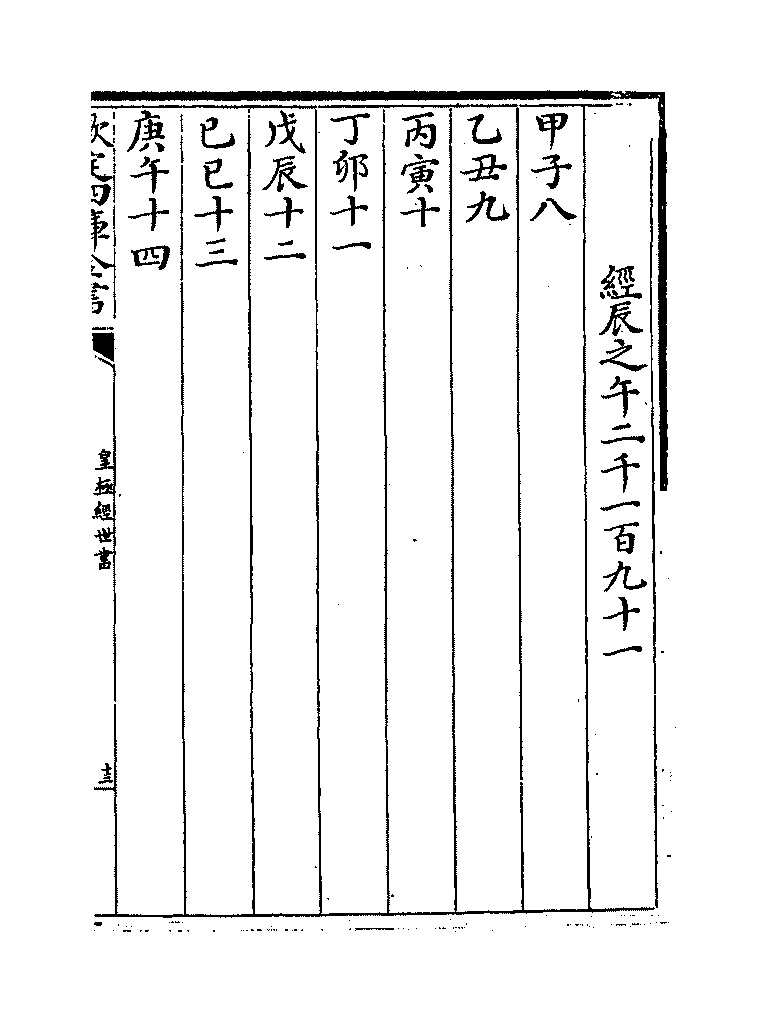 經辰之午二千一百九十一
甲子八
乙丑九
丙寅十
丁卯十一
戊辰十二
己巳十三
庚午十四
欽定四庫全書
皇極經世書
十三